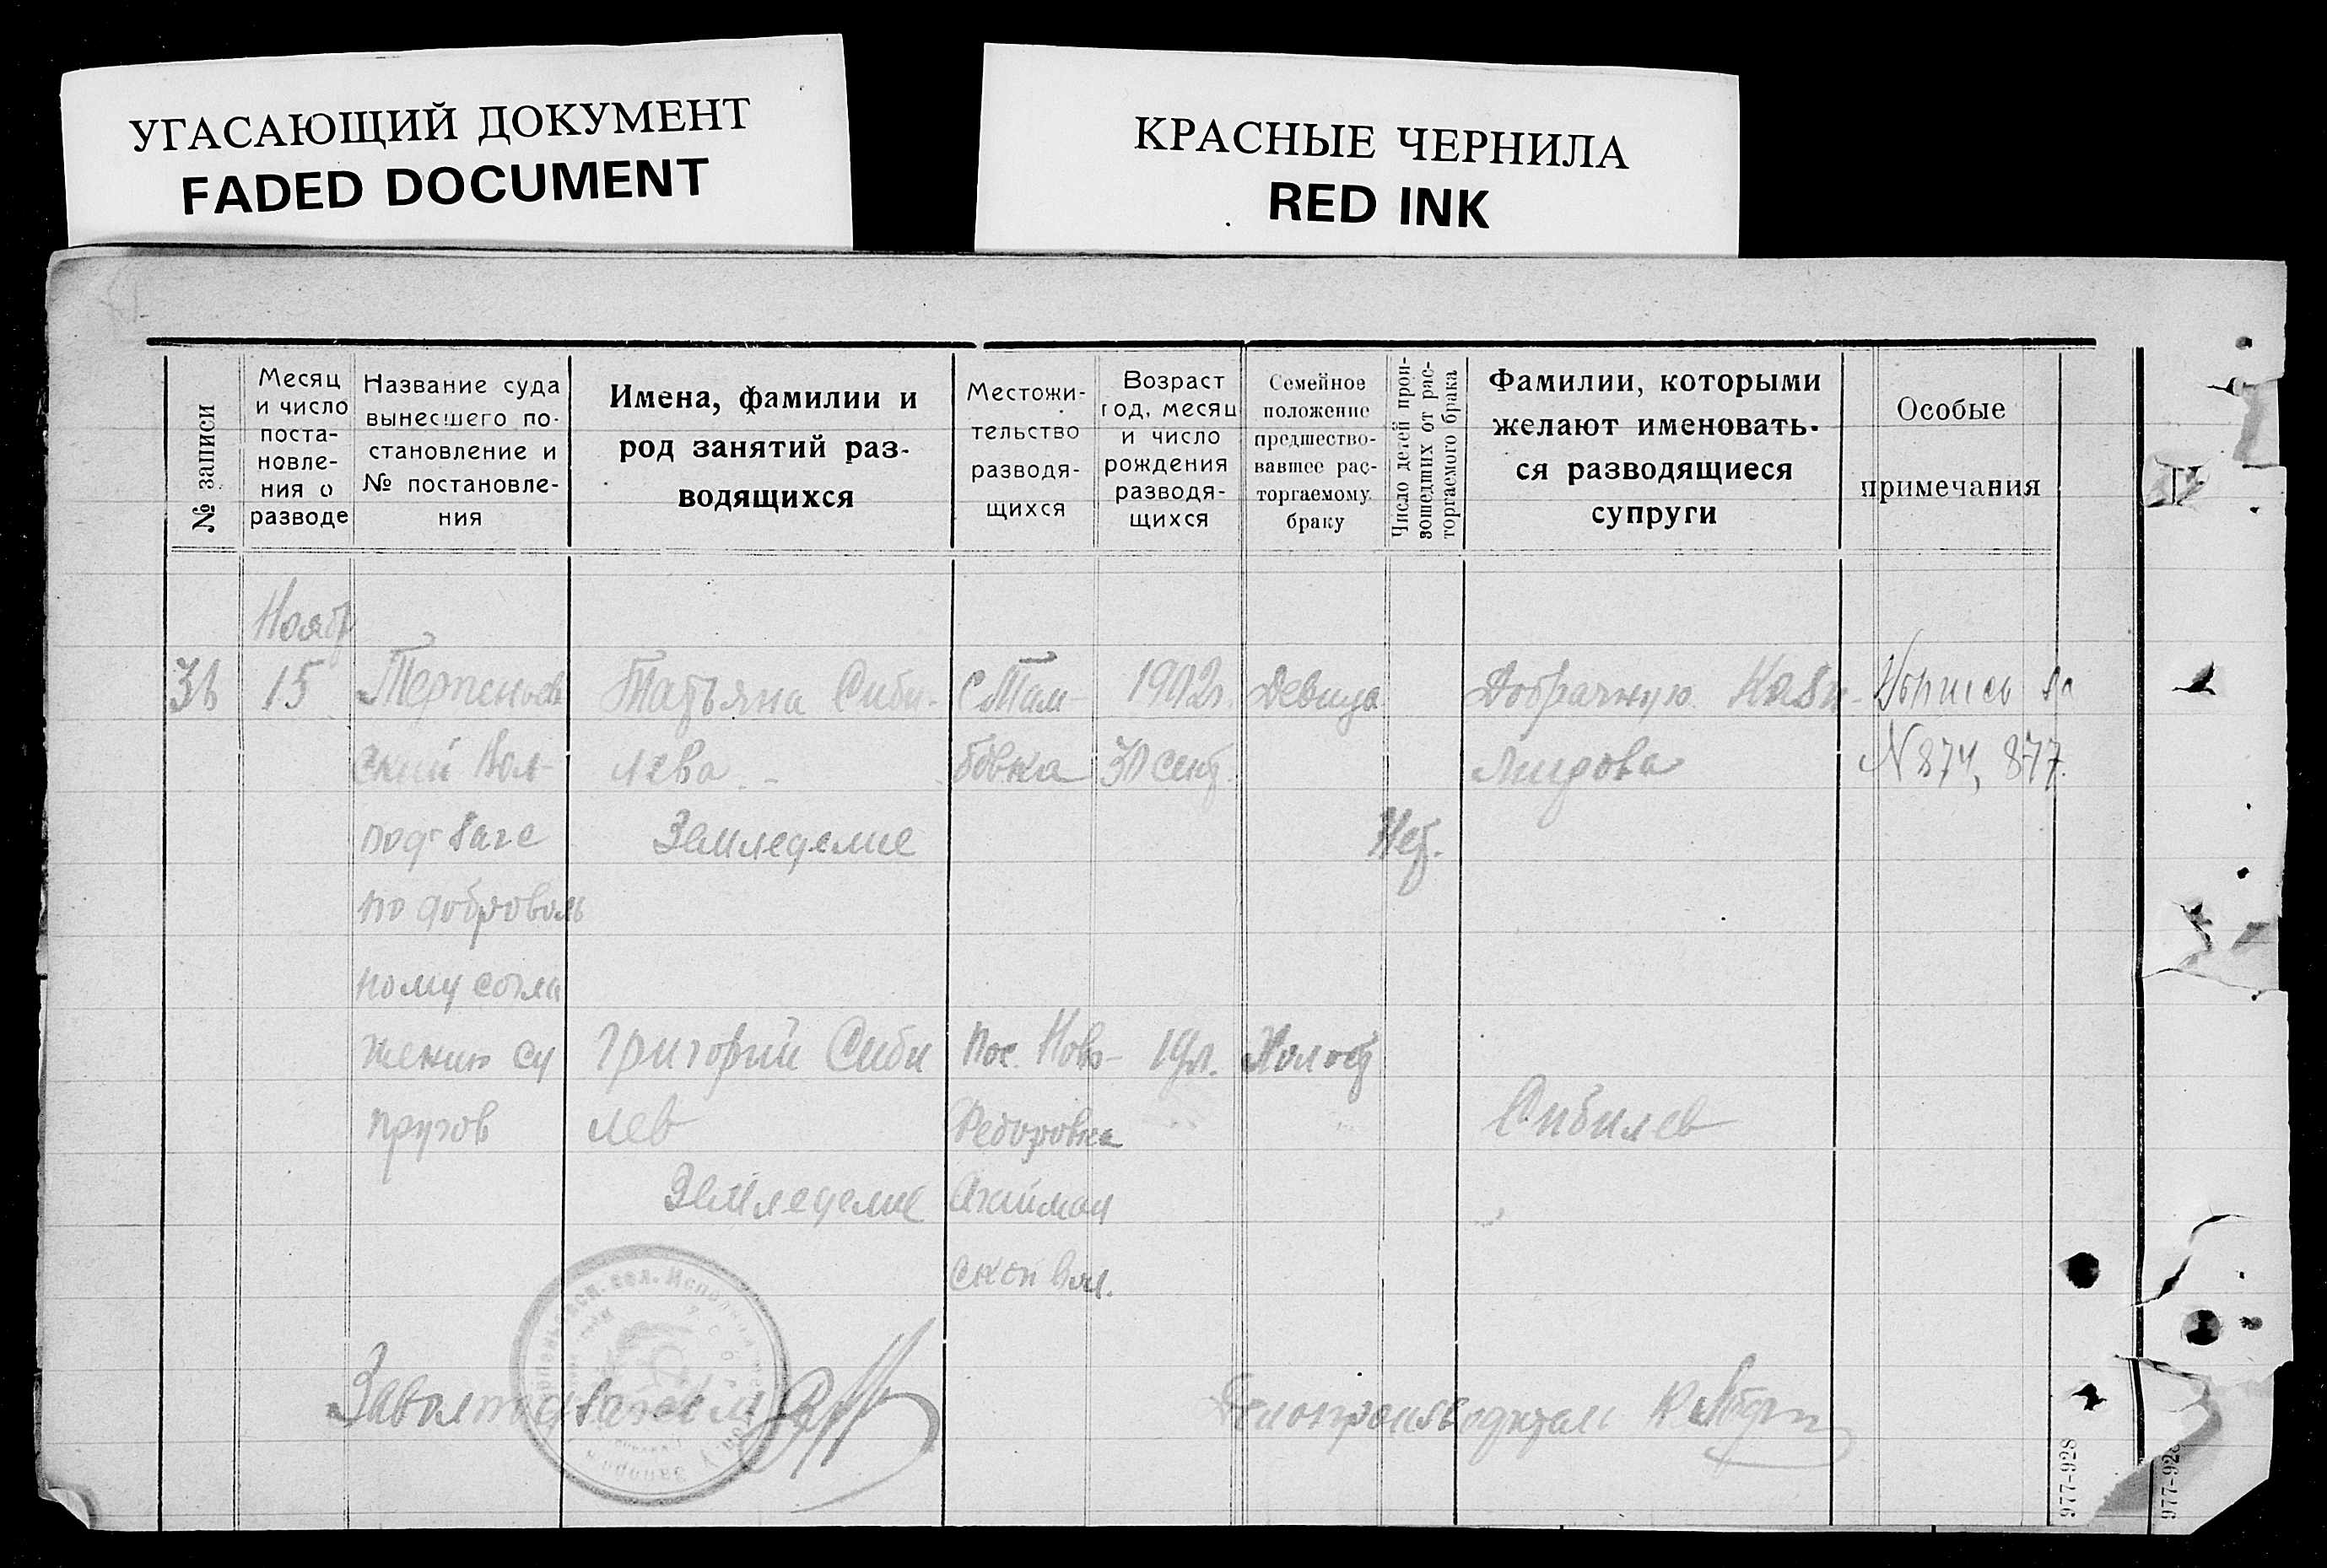 УГАСАЮЩИЙ ДОКУМЕНТ
FADED DOCUMENT
КРАСНЫЕ ЧЕРНИЛА
RED INK
№ записи
Месяц
и число
поста-
новле-
ния о
разводе
Название суда
вынесшего по-
становление и
№ постановле-
ния
Имена, фамилии и
род занятий раз-
водящихся
Местожи-
тельство
разводя-
щихся
Возраст
год, месяц
и число
рождения
разводя-
щихся
Семейное
положение
предшество-
вавшее рас-
торгаемому
браку
Число детей прои-
зошедших от рас-
торгаемого брака
Фамилии, которыми
желают именовать-
ся разводящиеся
супруги
Особые
примечания
Нояб
15
ский Вол
подзаге
по доброволь
ному согла
жению су
пругов
Татьяна Сиби-
лева
Земледелие
с Там-
бовка
1902г.
30 сент.
Девица
Нет.
Добрачную
N 874, 877.
Григорий Сиби
лев
Земледелие
пос. Ново-
Федоровка
Агайман
ской вол.
19л.
Холост
Сибилев
Заволподзагсом
Делопроизводитель
977-928
977-928